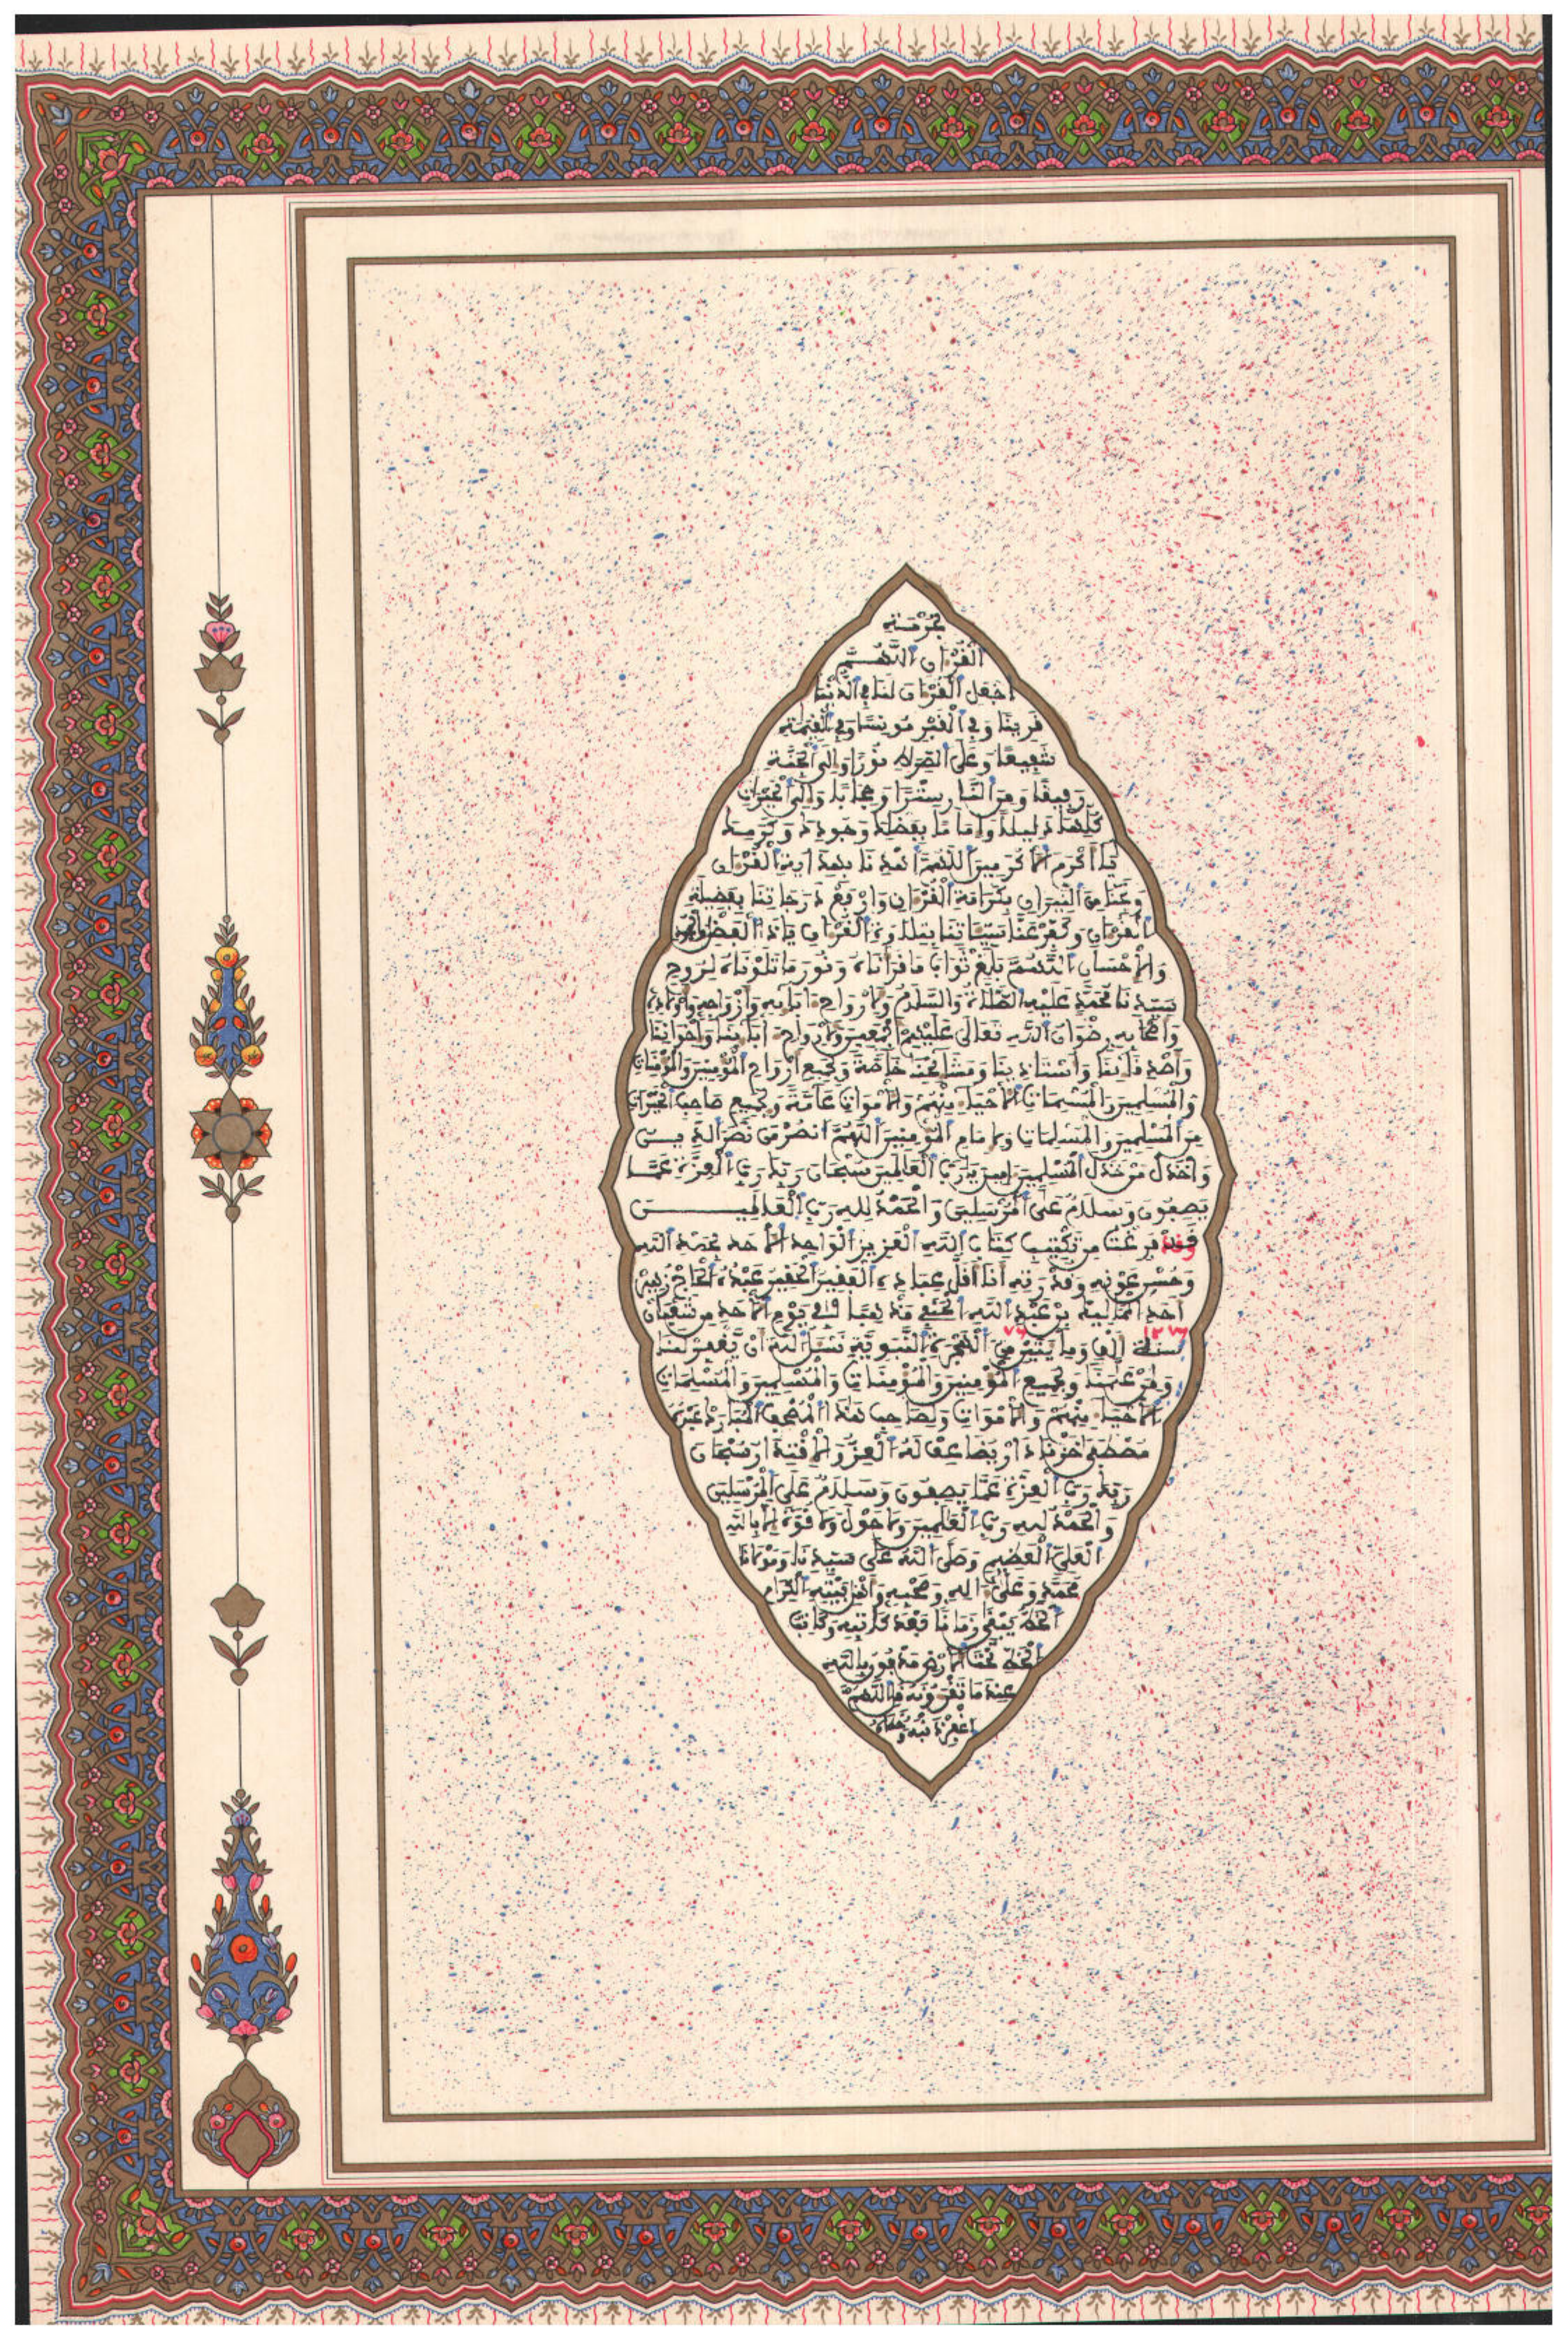 بحرمة
الْقُرْءَانِ اللَّهُمَّ
اجْعَلِ الْقُرْءَانَ لَنَا فِي الدُّنْيَا
قَرِينًا وَفِي الْقَبْرِ مُونِسًا وَفِي الْقِيَٰمَةِ
شَفِيعًا وَعَلَى الصِّرَاطِ نُورًا وَإِلَى الْجَنَّةِ
رَفِيقًا وَمِنَ النَّارِ سِتْرًا وَحِجَابًا وَإِلَى الْخَيْرَاتِ
كُلِّهَا دَلِيلًا وَإِمَامًا بِفَضْلِكَ وَجُودِكَ وَكَرَمِكَ
يَا أَكْرَمَ الْأَكْرَمِينَ اللَّهُمَّ اهْدِنَا بِهِدَايَةِ الْقُرْءَانِ
وَنَجِّنَا مِنَ النِّيرَانِ بِكَرَامَةِ الْقُرْءَانِ وَارْفَعْ دَرَجَاتِنَا بِفَضِيلَةِ
الْقُرْءَانِ وَكَفِّرْ عَنَّا سَيِّئَاتِنَا بِتِلَاوَةِ الْقُرْءَانِ يَا ذَا الْفَضْلِ
وَالْإِحْسَانِ اللَّهُمَّ بَلِّغْ ثَوَابَ مَا قَرَأْنَاهُ وَنُورَ مَا تَلَوْنَاهُ لِرُوحِ
سَيِّدِنَا مُحَمَّدٍ عَلَيْهِ الصَّلَاةُ وَالسَّلَامُ وَلِأَرْوَاحِ ءَابَآئِهِ وَأَزْوَاجِهِ وَأَوْلَادِهِ
وَأَصْحَابِهِ رِضْوَانُ اللَّهِ تَعَالَى عَلَيْهِمْ أَجْمَعِينَ وَلِأَرْوَاحِ ءَابَآئِنَا وَإِخْوَانِنَا
وَأَصْدِقَائِنَا وَأُسْتَاذِينَا وَمَشَائِخِنَا خَاصَّةً وَلِجَمِيعِ أَرْوَاحِ الْمُؤْمِنِينَ وَالْمُؤْمِنَاتِ
وَالْمُسْلِمِينَ وَالْمُسْلِمَاتِ الْأَحْيَاءِ مِنْهُمْ وَالْأَمْوَاتِ عَامَّةً وَلِجَمِيعِ صَاحِبِ الْخَيْرَاتِ
مِنَ الْمُسْلِمِينَ وَالْمُسْلِمَاتِ وَلِإِمَامِ الْمُؤْمِنِينَ اللَّهُمَّ انْصُرْ مَنْ نَصَرَ الدِّيـنَ
وَاخْذُلْ مَنْ خَذَلَ الْمُسْلِمِينَ ءَامِينَ يَا رَبَّ الْعَالَمِينَ سُبْحَانَ رَبِّكَ رَبِّ الْعِزَّةِ عَمَّا
يَصِفُونَ وَسَلَامٌ عَلَى الْمُرْسَلِينَ وَالْحَمْدُ لِلَّهِ رَبِّ الْعَالَمِيـــــنَ
وَقَدْ فَرَغْتُ مِنْ تَكْتِيبِ كِتَابِ اللَّهِ الْعَزِيزِ الْوَاحِدِ الْأَحَدِ بِحَمْدِ اللَّهِ
وَحُسْنِ عَوْنِهِ وَقُدْرَتِهِ أَنَا أَقَلُّ عِبَادِهِ الْفَقِيرُ الْحَقِيرُ عَبْدُهُ الْحَاجُّ زُهَيْرْ
بْنُ عَبْدِ اللَّهِ الْحَنَفِي مَذْهَبًا فِي يَوْمِ الْأَحَدِ مِنْ شَعْبَانَ
١٢٧٦ ٧٦
سَنَةَ أَلْفٍ وَمِايَتَيْنِ مِنَ الْهِجْرَةِ النَّبَوِيَّةِ نَسْئَلُ اللَّهَ أَنْ يَغْفِرَ لَنَا
وَلِمَنْ عَلَّمَنَا وَلِجَمِيعِ الْمُؤْمِنِينَ وَالْمُؤْمِنَاتِ وَالْمُسْلِمِينَ وَالْمُسْلِمَاتِ
الْأَحْيَاءِ مِنْهُمْ وَالْأَمْوَاتِ وَلِصَاحِبِ هَٰذَا الْمُصْحَفِ الْمُبَارَكِ
مُصْطَفَى خَزْنَادَارْ يُضَاعِفُ لَهُ الْعِزَّ سُبْحَانَ
رَبِّكَ رَبِّ الْعِزَّةِ عَمَّا يَصِفُونَ وَسَلَامٌ عَلَى الْمُرْسَلِينَ
وَالْحَمْدُ لِلَّهِ رَبِّ الْعَالَمِينَ وَلَا حَوْلَ وَلَا قُوَّةَ إِلَّا بِاللَّهِ
الْعَلِيِّ الْعَظِيمِ وَصَلَّى اللَّهُ عَلَى سَيِّدِنَا وَمَوْلَانَا
مُحَمَّدٍ وَعَلَى ءَالِهِ وَصَحْبِهِ الْكِرَامِ
الْخَطُّ يَبْقَى زَمَانًا بَعْدَ كَاتِبِهِ وَكَاتِبُ
الْخَطِّ تَحْتَ الْأَرْضِ مَدْفُونٌ بِاللَّهِ
عِنْدَ مَا تَقْرَءُونَهُ قُلِ اللَّهُمَّ
اغْفِرْ ذَنْبَهُ